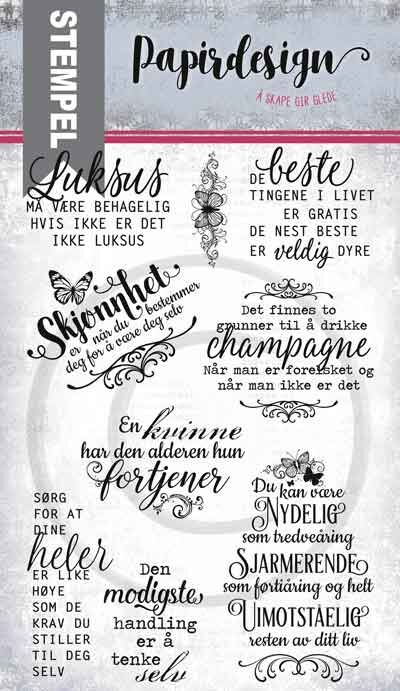 STEMPEL
Papirdesign
Å SKAPE GIR GLEDE
Luksus
MÅ VÆRE BEHAGELIG
HVIS IKKE ER DET
IKKE LUKSUS
DE beste
TINGENE I LIVET
ER GRATIS
DE NEST BESTE
ER veldig DYRE
Skjønnhet
er når du bestemmer
deg for å være deg selv
Det finnes to
grunner til å drikke
champagne
Når man er forelsket og
når man ikke er det
En kvinne
har den alderen hun
fortjener
SØRG
FOR AT
DINE
heler
ER LIKE
HØYE
SOM DE
KRAV DU
STILLER
TIL DEG
SELV
Den
modigste
handling
er å
tenke
selv
Du kan være
NYDELIG
som tredveåring
SJARMERENDE
som førtiåring og helt
UIMOTSTÅELIG
resten av ditt liv